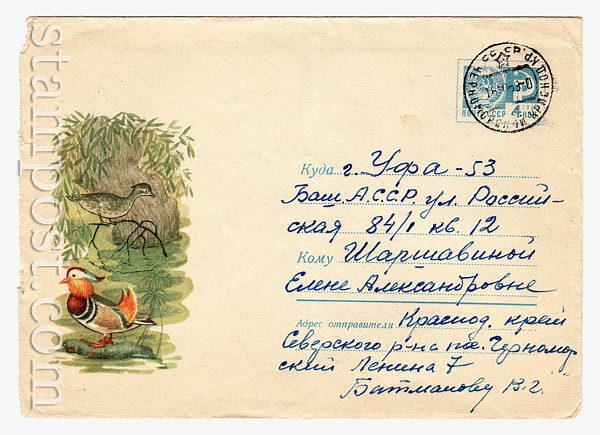 stampost.com
ПОЧТА СССР 4 КОП
Куда г. Уфа-53
Баш. А.С.С.Р. ул. Россий-
ская 84/1 кв. 12
Кому Шаршавиной
Елене Александровне
Адрес отправителя Краснод. край
Северского р-на пос. Черномор
ский Ленина 7
Батманову В.г.